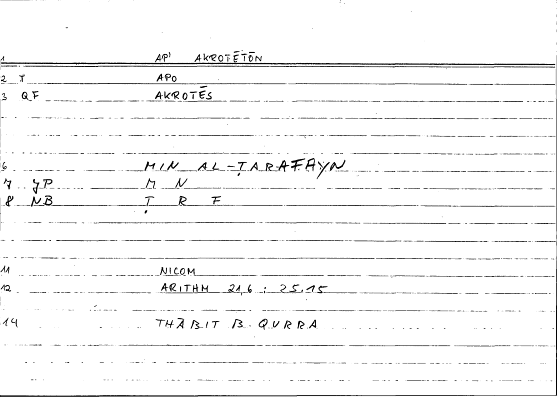 1 AP' AKROTĒTŌN
2 T APO
3 QF AKROTĒS
6 MIN AL-ṬARAFAYN
7 YP M N
8 NB Ṭ R F
11 NICOM
12 ARITHM 21,6 : 25.15
14 THĀBIT B. QURRA